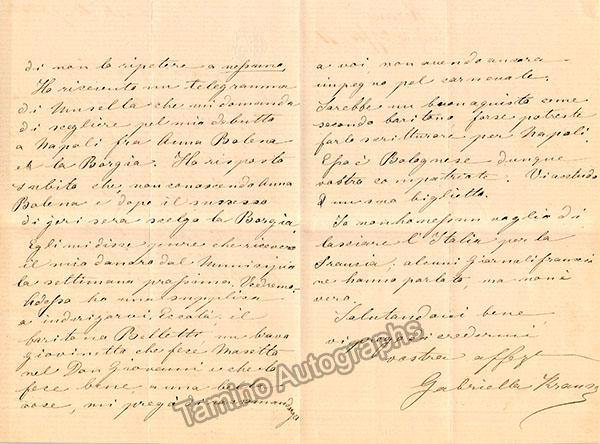 di non lo ripetere a nessuno.
Ho ricevuto un telegramma
di Musella che mi domanda
di scegliere pel mio debutto
a Napoli fra Anna Bolena
e la Borgia. Ho risposto
subito che, non conoscendo Anna
Bolena e dopo il successo
di jeri sera scelgo la Borgia.
Egli mi disse pure che riceverò
il mio danaro dal Municipio
la settimana prossima. Vedremo.
Adesso ho una supplica
a indirizarvi. Eccola: il
baritono Belletti, un bravo
giovinetto che fece Masetto
nel Don Giovanni e che lo
fece bene, a una bella
voce, mi prega di raccomandarlo
a voi, non avendo ancora
impegno pel carnevale.
Sarebbe un buon aquisto come
secondo baritono forse potreste
farlo scritturare per Napoli.
Esso è Bolognese dunque
vostro compatriota. Vi accludo
un suo biglietto.
Io non ho nessun voglia di
lasciare l'Italia per la
Francia; alcuni giornali francesi
ne hanno parlato, ma non è
vero.
Salutandovi bene
vi prego di credermi
vostra affez
Gabriella Krauss
Tamino Autographs